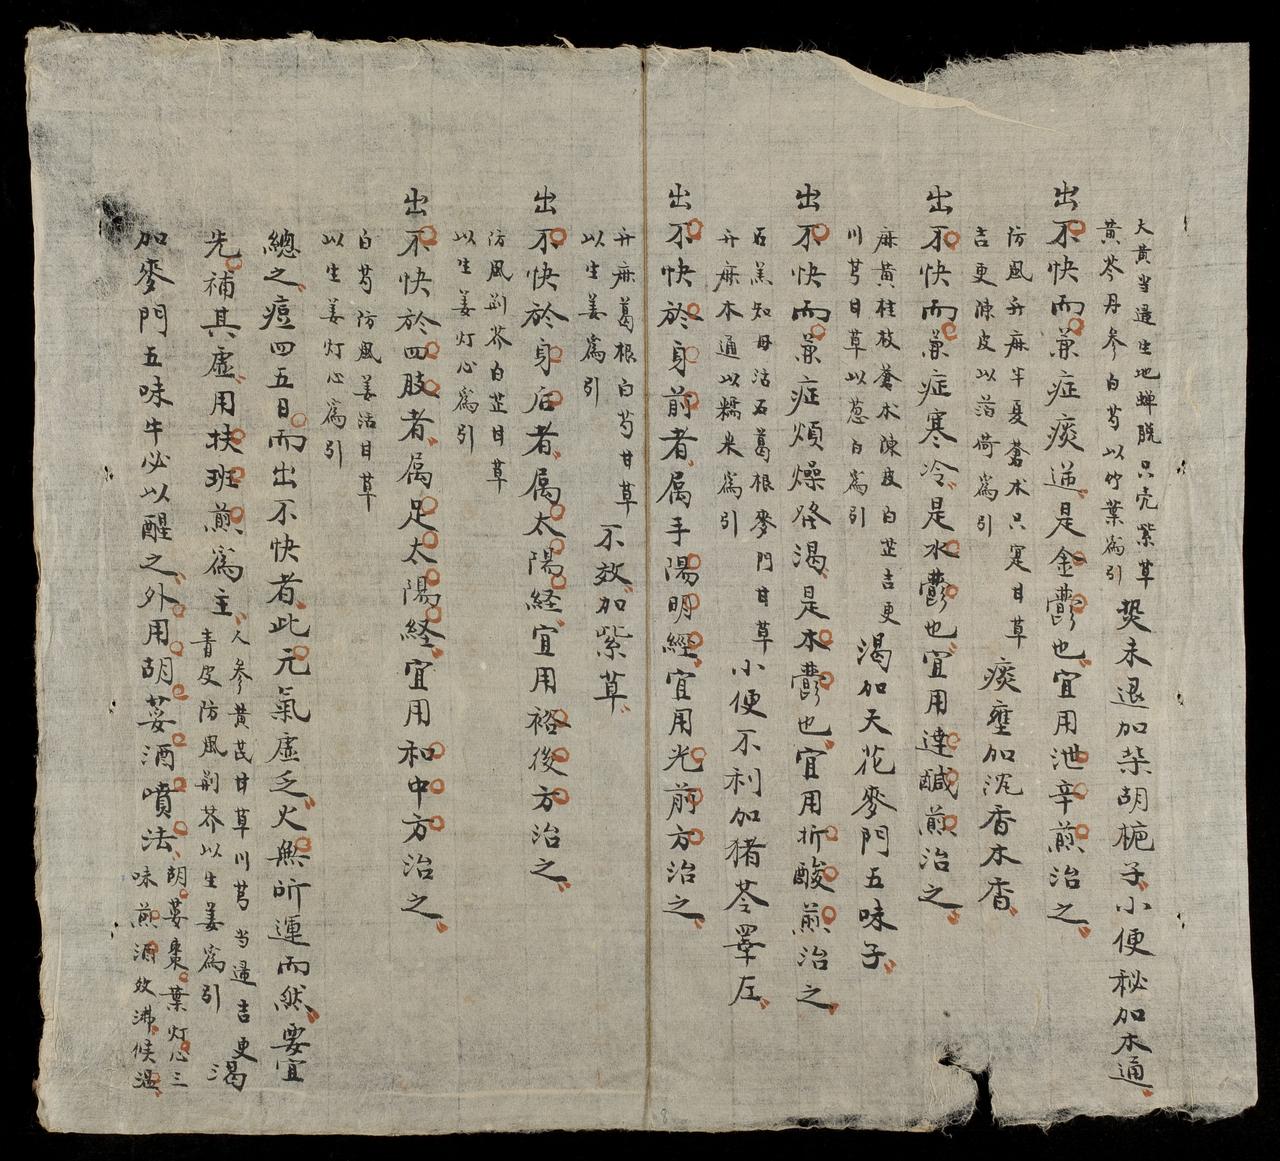 大黃当過生地蟬脱只壳紫草
黃芩丹参白芍以竹葉爲引
熨未退加柴胡梔子小便秘加木通
出不快而兼症痰逆是金鬱也宜用泄辛煎治之
防風升麻半夏蒼术只寔甘草
吉更陳皮以萡荷爲引
痰壅加沉香木香
出不快而兼症寒冷是水鬱也宜用達鹹煎治之
麻黃桂枝蒼术陳皮白芷吉更
川芎甘草以葱白爲引
渴加天花麥門五味子
出不快而兼症煩燥咯渴是木鬱也宜用折酸煎治之
石羔知母沽石葛根麥門甘草
升麻木通以糯米爲引
小便不利加猪苓睪左
出不快於身前者属手陽明經宜用光前方治之
升麻葛根白芍甘草
以生姜爲引
不效加紫草
出不快於身后者属太陽経宜用裕後方治之
防風荊芥白芷甘草
以生姜灯心爲引
出不快於四肢者属足太陽経宜用和中方治之
白芍防風姜沽甘草
以生姜灯心爲引
總之痘四五日而出不快者此元氣虛乏火無所運而然要宜
先補其虛用扶班煎爲主
人参黃芪甘草川芎当過吉更
青皮防風荊芥以生姜爲引
渴
加麥門五味牛必以醒之外用胡荽酒噴法
胡荽棗葉灯心三
味煎酒效沸候温